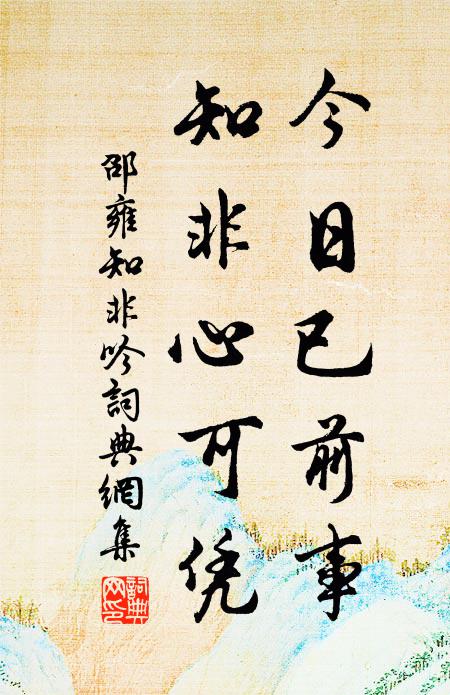 今日已前事
知非心可凭
邵雍知非吟詞典網集
詞典網印